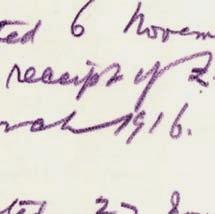 ted 6 Novem
receipt of 2
arch 1916.
ted 22